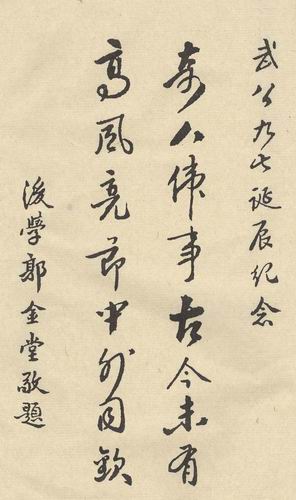 武公九七诞辰纪念
奇人伟事古今未有
高风亮节中外同钦
后学郭金堂敬题